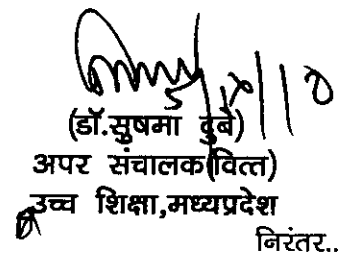 (डॉ.सुषमा दुबे)
अपर संचालक(वित्त)
उच्च शिक्षा,मध्यप्रदेश
निरंतर..